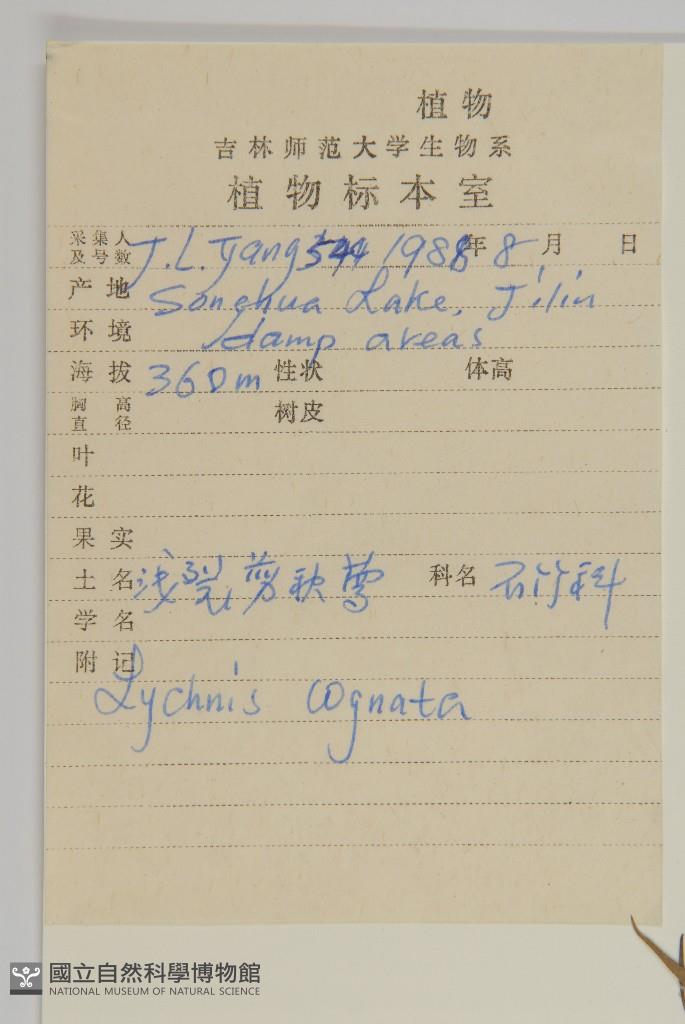 植物
吉林师范大学生物系
植物标本室
采集人及号数 J. L. Yang 544 1988年 8 月 日
产地 Songhua Lake, Jilin
环境 damp areas
海拔 360m 性状 体高
胸高直径 树皮
叶
花
果实
土名 浅裂剪秋萝 科名 石竹科
学名
附记
Lychnis cognata
國立自然科學博物館
NATIONAL MUSEUM OF NATURAL SCIENCE